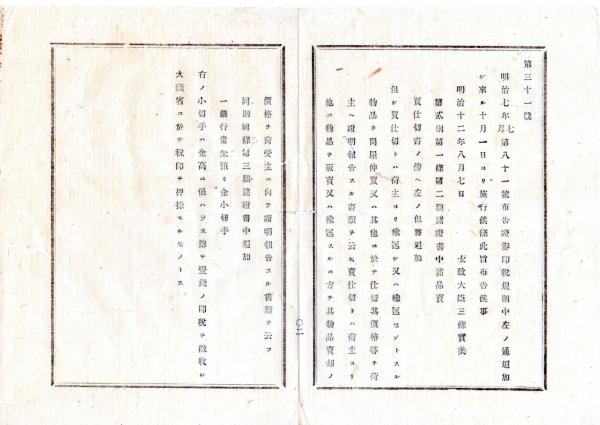 第三十一號
明治七年七月第八十一號布告證券印稅規則中左ノ通追加
シ來ル十月一日ヨリ施行候條此旨布告候事
明治十二年八月七日
太政大臣三條實美
第貳則第一條第二類諸證書中諸品賣
買仕切書ノ傍ヘ左ノ但書追加
但シ買仕切トハ荷主ヨリ輸送シ又ハ輸送セントスル
物品ヲ問屋仲買又ハ其他ニ於テ仕切其價格等ヲ荷
主ヘ證明報告スル書類ヲ云ヒ賣仕切トハ荷主ヨリ
他ニ物品ヲ販賣又ハ輸送スルの方テ其物品賣却ノ
〇二
價格ヲ荷受主ニ向テ證明報告スル書類ヲ云フ
同則同條第三類諸證書中追加
一銀行當座預リ金小切手
右ノ小切手ハ金高ニ係ハラス總テ壹錢ノ印稅ヲ徵收シ
大藏省ニ於テ稅印ヲ押捺スルモノトス